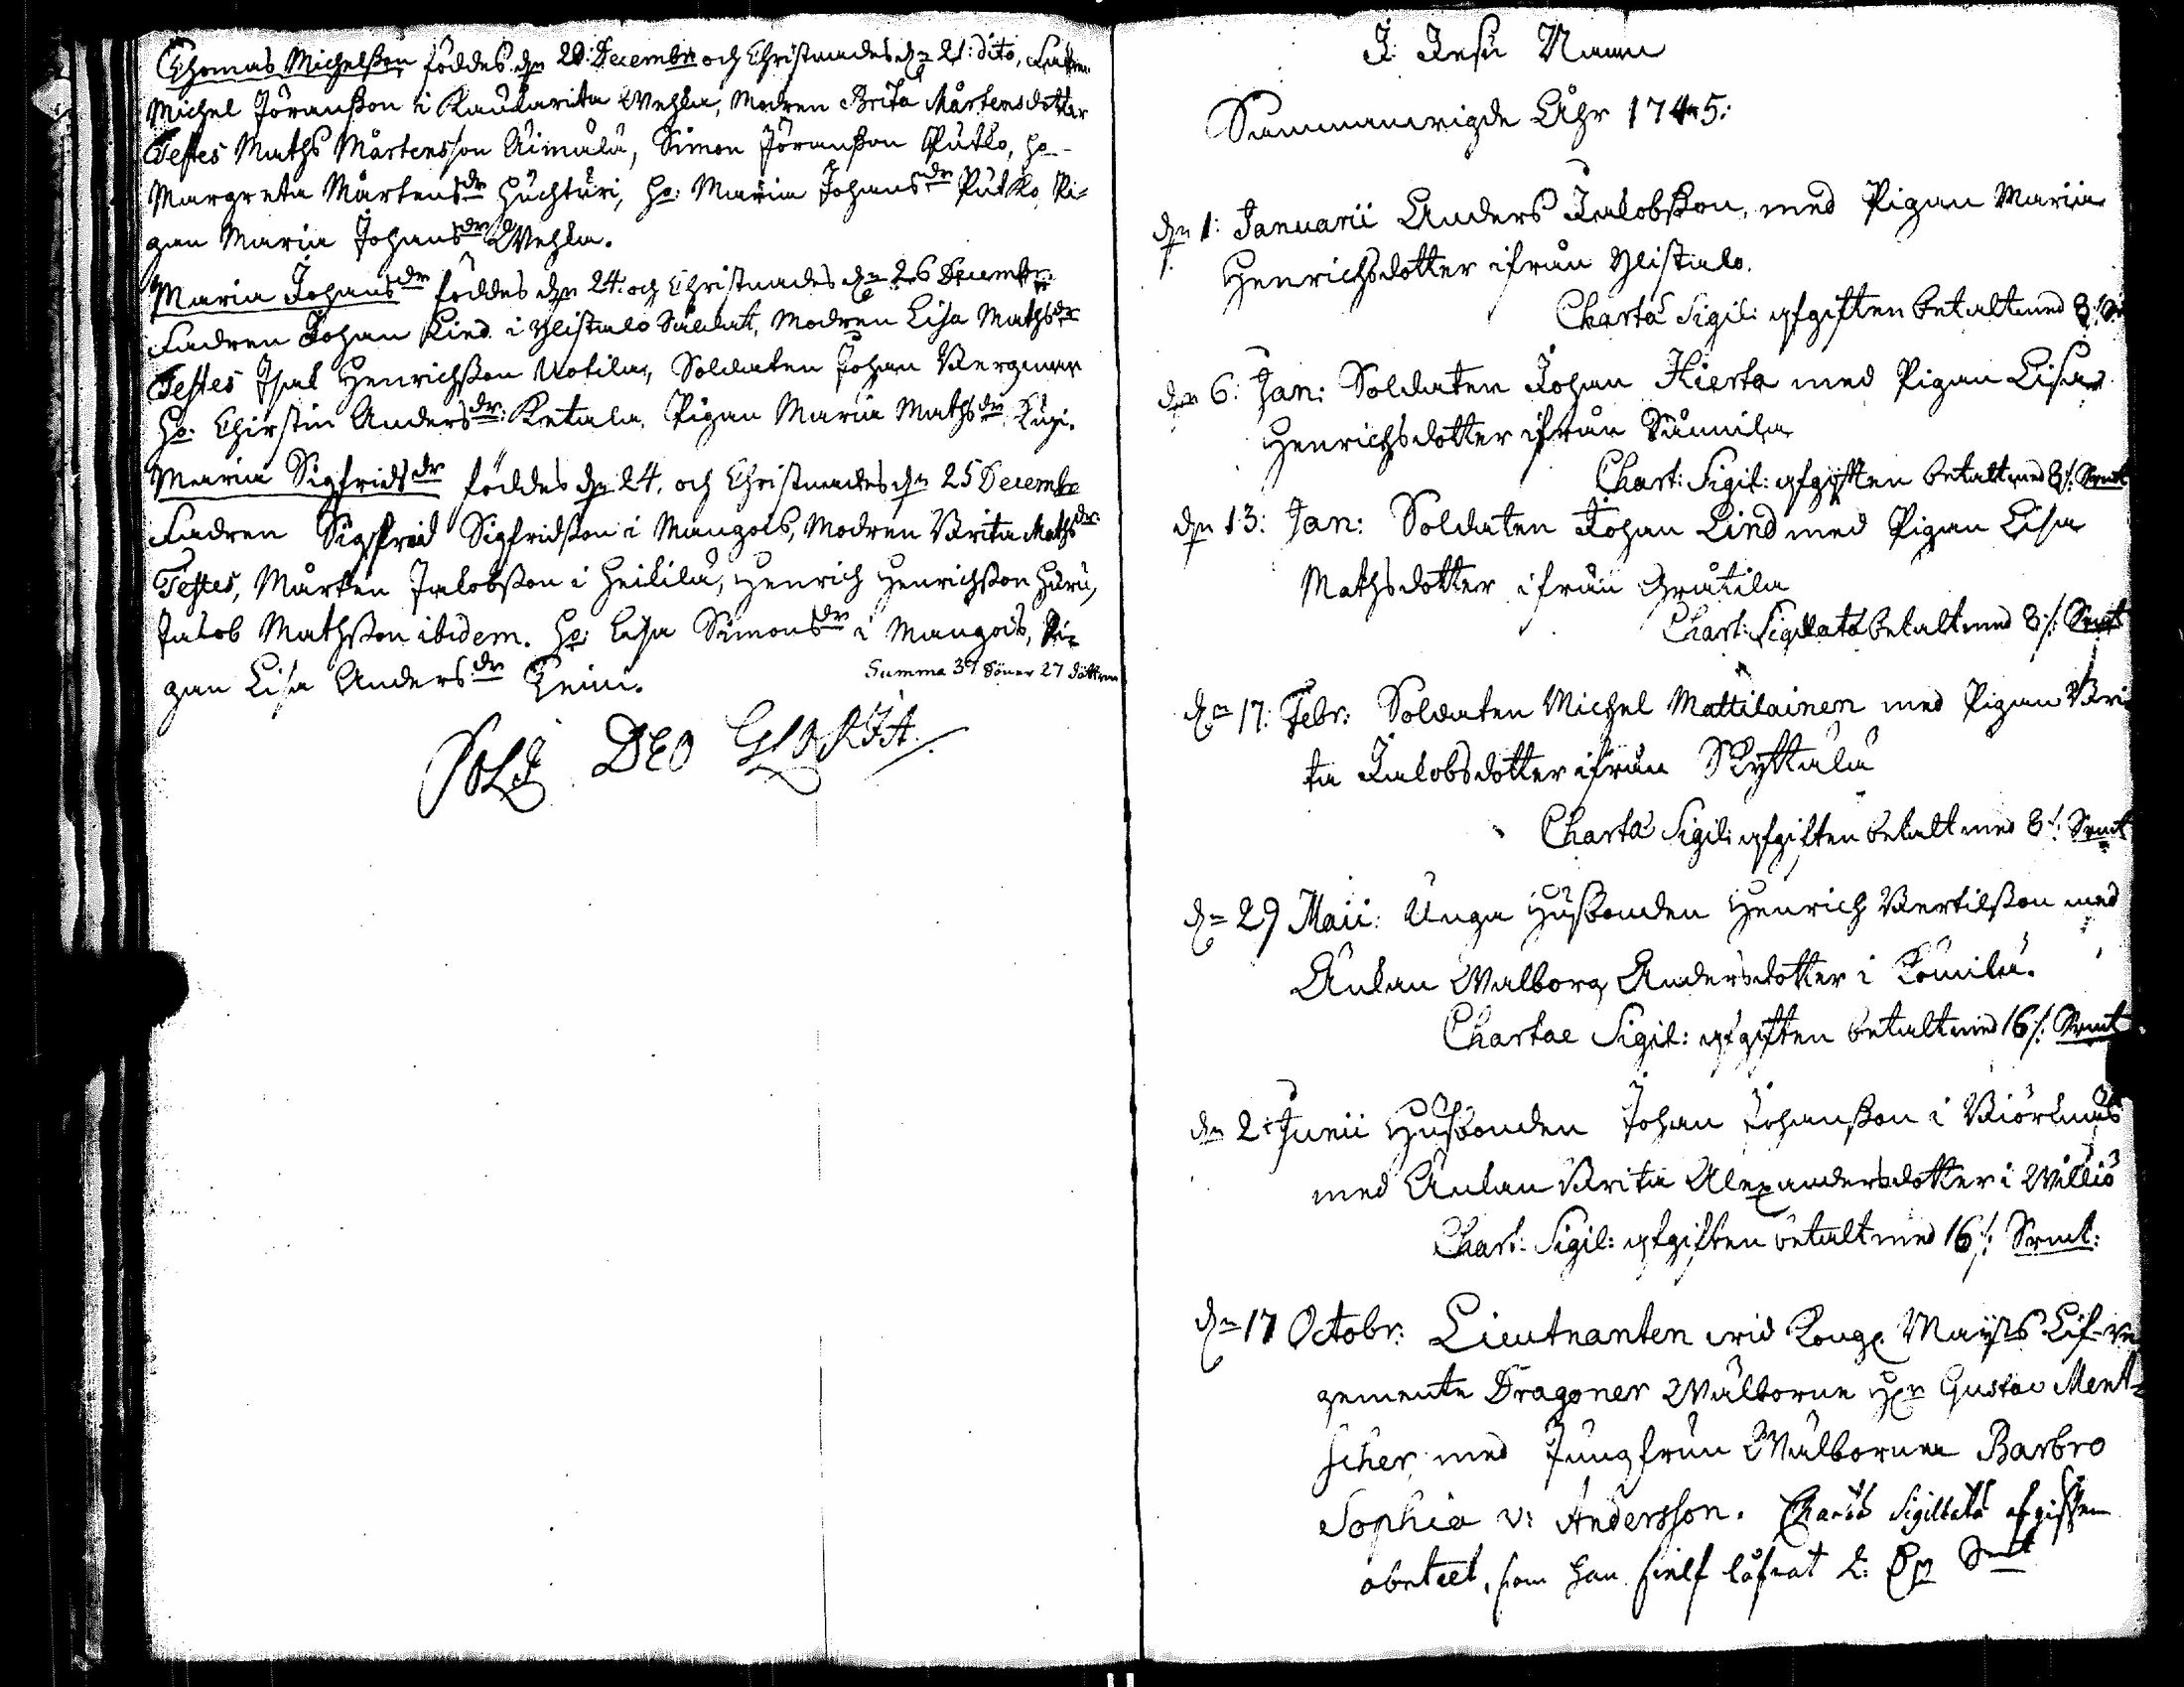 Thomas Michelsson föddes dn 20. Decembr och Christnades dn 21: dito, Fadren
Michel Jöransson i Kaukarita Wehla, Modren Brita Mårtensdotter
Testes Maths Mårtensson Äimälä, Simon Jöransson Putko, ho
Margreta Mårtensdr Huchturi, ho: Maria Johansdr Putko, Pi=
gan Maria Johansdr Wehla.
Maria Johansdr föddes dn 24. och Christnades dn 26 Decembr
Fadren Johan Lind i Ylistalo Såldat, Modren Lisa Mathsdr
Testes Isak Henrichsson Uotila, Soldaten Johan Bergman
ho. Chirstin Andersdr: Ketala, Pigan Maria Mathsdr
Maria Sigfridsdr föddes dn 24. och Christnades dn 25 Decembr
Fadren Sigfrid Sigfridsson i Mangois, Modren Brita Mathsdr
Testes, Mårten Jacobsson i Heikilä, Henrich Henrichsson
Jacob Mathsson ibidem. ho: Lisa Simonsdr i Mangois, Pi=
gan Lisa Andersdr
Summa 37 Söner 27 döttrar
SOLI DEO GLORIA.
I Jesu Namn
Sammanvigde Åhr 1745:
dn 1: Januarii Anders Jakobsson, med Pigan Maria
Henrichsdotter ifrån Ylistalo.
Charta Sigil: afgiften betalt med 8
dn 6: Jan: Soldaten Johan Hierta med Pigan Lisa
Henrichsdotter ifrån
Chart: Sigil: afgiften betalt med 8/: Srmt
dn 13: Jan: Soldaten Johan Lind med Pigan Lisa
Mathsdotter ifrån
Chart: Sigillata betalt med 8/: Srmt
dn 17: Febr: Soldaten Michel Mattilainen med Pigan Bri
ta Jakobsdotter ifrån Skyttälä
Charta Sigil: afgiften betalt med 8/: Srmt
dn 29 Maii: Unga Husbonden Henrich Bertilsson med
Änkan Walborg Andersdotter i
Chartae Sigil: afgiften betalt med 16/: Srmt
dn 2: Junii Husbonden Johan Johansson i
med Änkan Brita Alexandersdotter i
Chart: Sigil: afgiften betalt med 16/: Srmt:
dn 17 Octobr: Lieutnanten wid Kongl Mayts Lif-re
gemente Dragoner Wälborne Hr Gustav Ment=
scher med Jungfrun Wälborna Barbro
Sophia v: Andersson. Charta Sigillata afgiften
obetalt, som han sielf låfvat